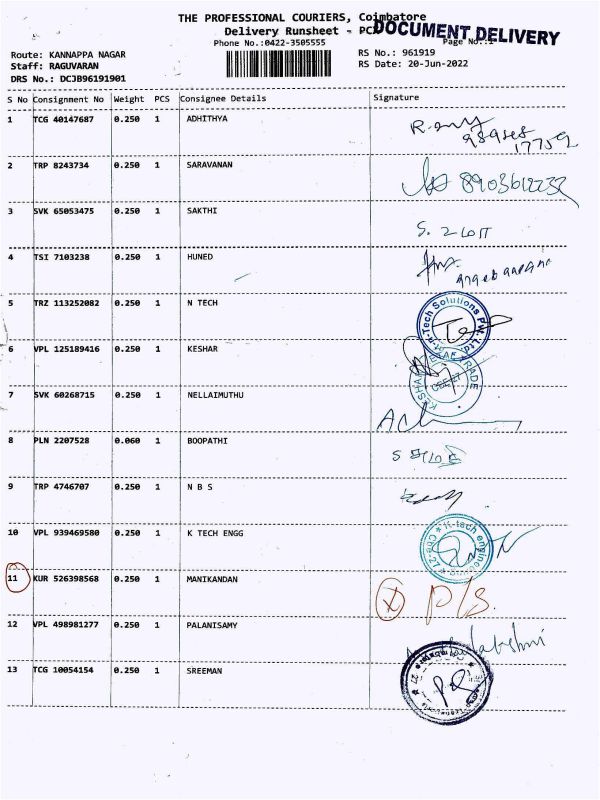 THE PROFESSIONAL COURIERS, Coimbatore
DOCUMENT DELIVERY
Delivery Runsheet - PCX
Phone No.:0422-3505555
Page No.:1
Route: KANNAPPA NAGAR
RS No.: 961919
Staff: RAGUVARAN
RS Date: 20-Jun-2022
DRS No.: DCJB96191901
S No Consignment No Weight PCS Consignee Details Signature
1 TCG 40147687 0.250 1 ADHITHYA
2 TRP 8243734 0.250 1 SARAVANAN
3 SVK 65053475 0.250 1 SAKTHI
4 TSI 7103238 0.250 1 HUNED
5 TRZ 113252082 0.250 1 N TECH
n-Tech Solutions Pvt. Ltd.
6 VPL 125189416 0.250 1 KESHAR
7 SVK 60268715 0.250 1 NELLAIMUTHU
8 PLN 2207528 0.060 1 BOOPATHI
9 TRP 4746707 0.250 1 N B S
10 VPL 939469580 0.250 1 K TECH ENGG
11 KUR 526398568 0.250 1 MANIKANDAN P/S.
12 VPL 498981277 0.250 1 PALANISAMY
13 TCG 10054154 0.250 1 SREEMAN